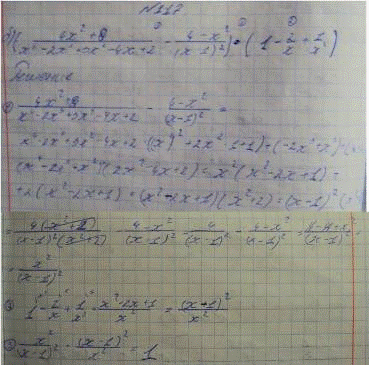 N117
( (4x²+8)/(x⁴-2x³+3x²-4x+2) - (4-x²)/(x-1)² ) · ( 1 - 2/x + 1/x² )
Решение
① (4x²+8)/(x⁴-2x³+3x²-4x+2) - (4-x²)/(x-1)² =
x⁴-2x³+3x²-4x+2
(x⁴-2x³+x²)(2x²-4x+2) = x²(x²-2x+1) =
+2(x²-2x+1) = (x²-2x+1)(x²+2) = (x-1)²
= 4(x²+2)/((x-1)²(x²+2)) - (4-x²)/(x-1)² = 4/(x-1)² - (4-x²)/(x-1)² = (4-4+x²)/(x-1)² =
= x²/(x-1)²
② 1 - 2/x + 1/x² = (x²-2x+1)/x² = (x+1)²/x²
③ x²/(x-1)² · (x-1)²/x² = 1